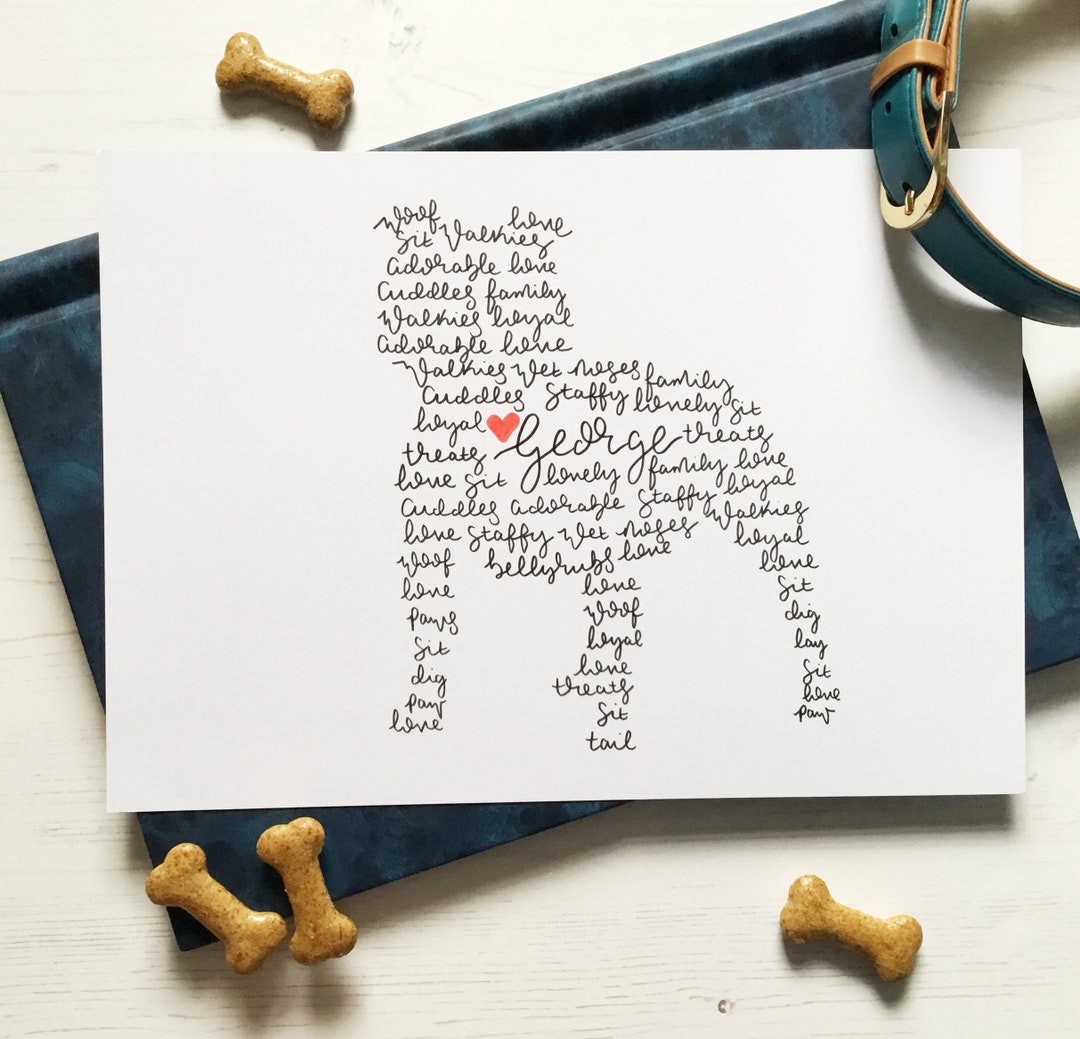 woof love
sit walkies
adorable love
cuddles family
walkies loyal
adorable love
walkies wet noses family
cuddles staffy lovely sit
loyal George treats
treats lovely family love
love sit
cuddles adorable staffy loyal
love staffy wet noses walkies
woof bellyrubs love loyal
love love love
paws woof sit
sit loyal dig
dig love lay
paw treats sit
love sit love
tail paw